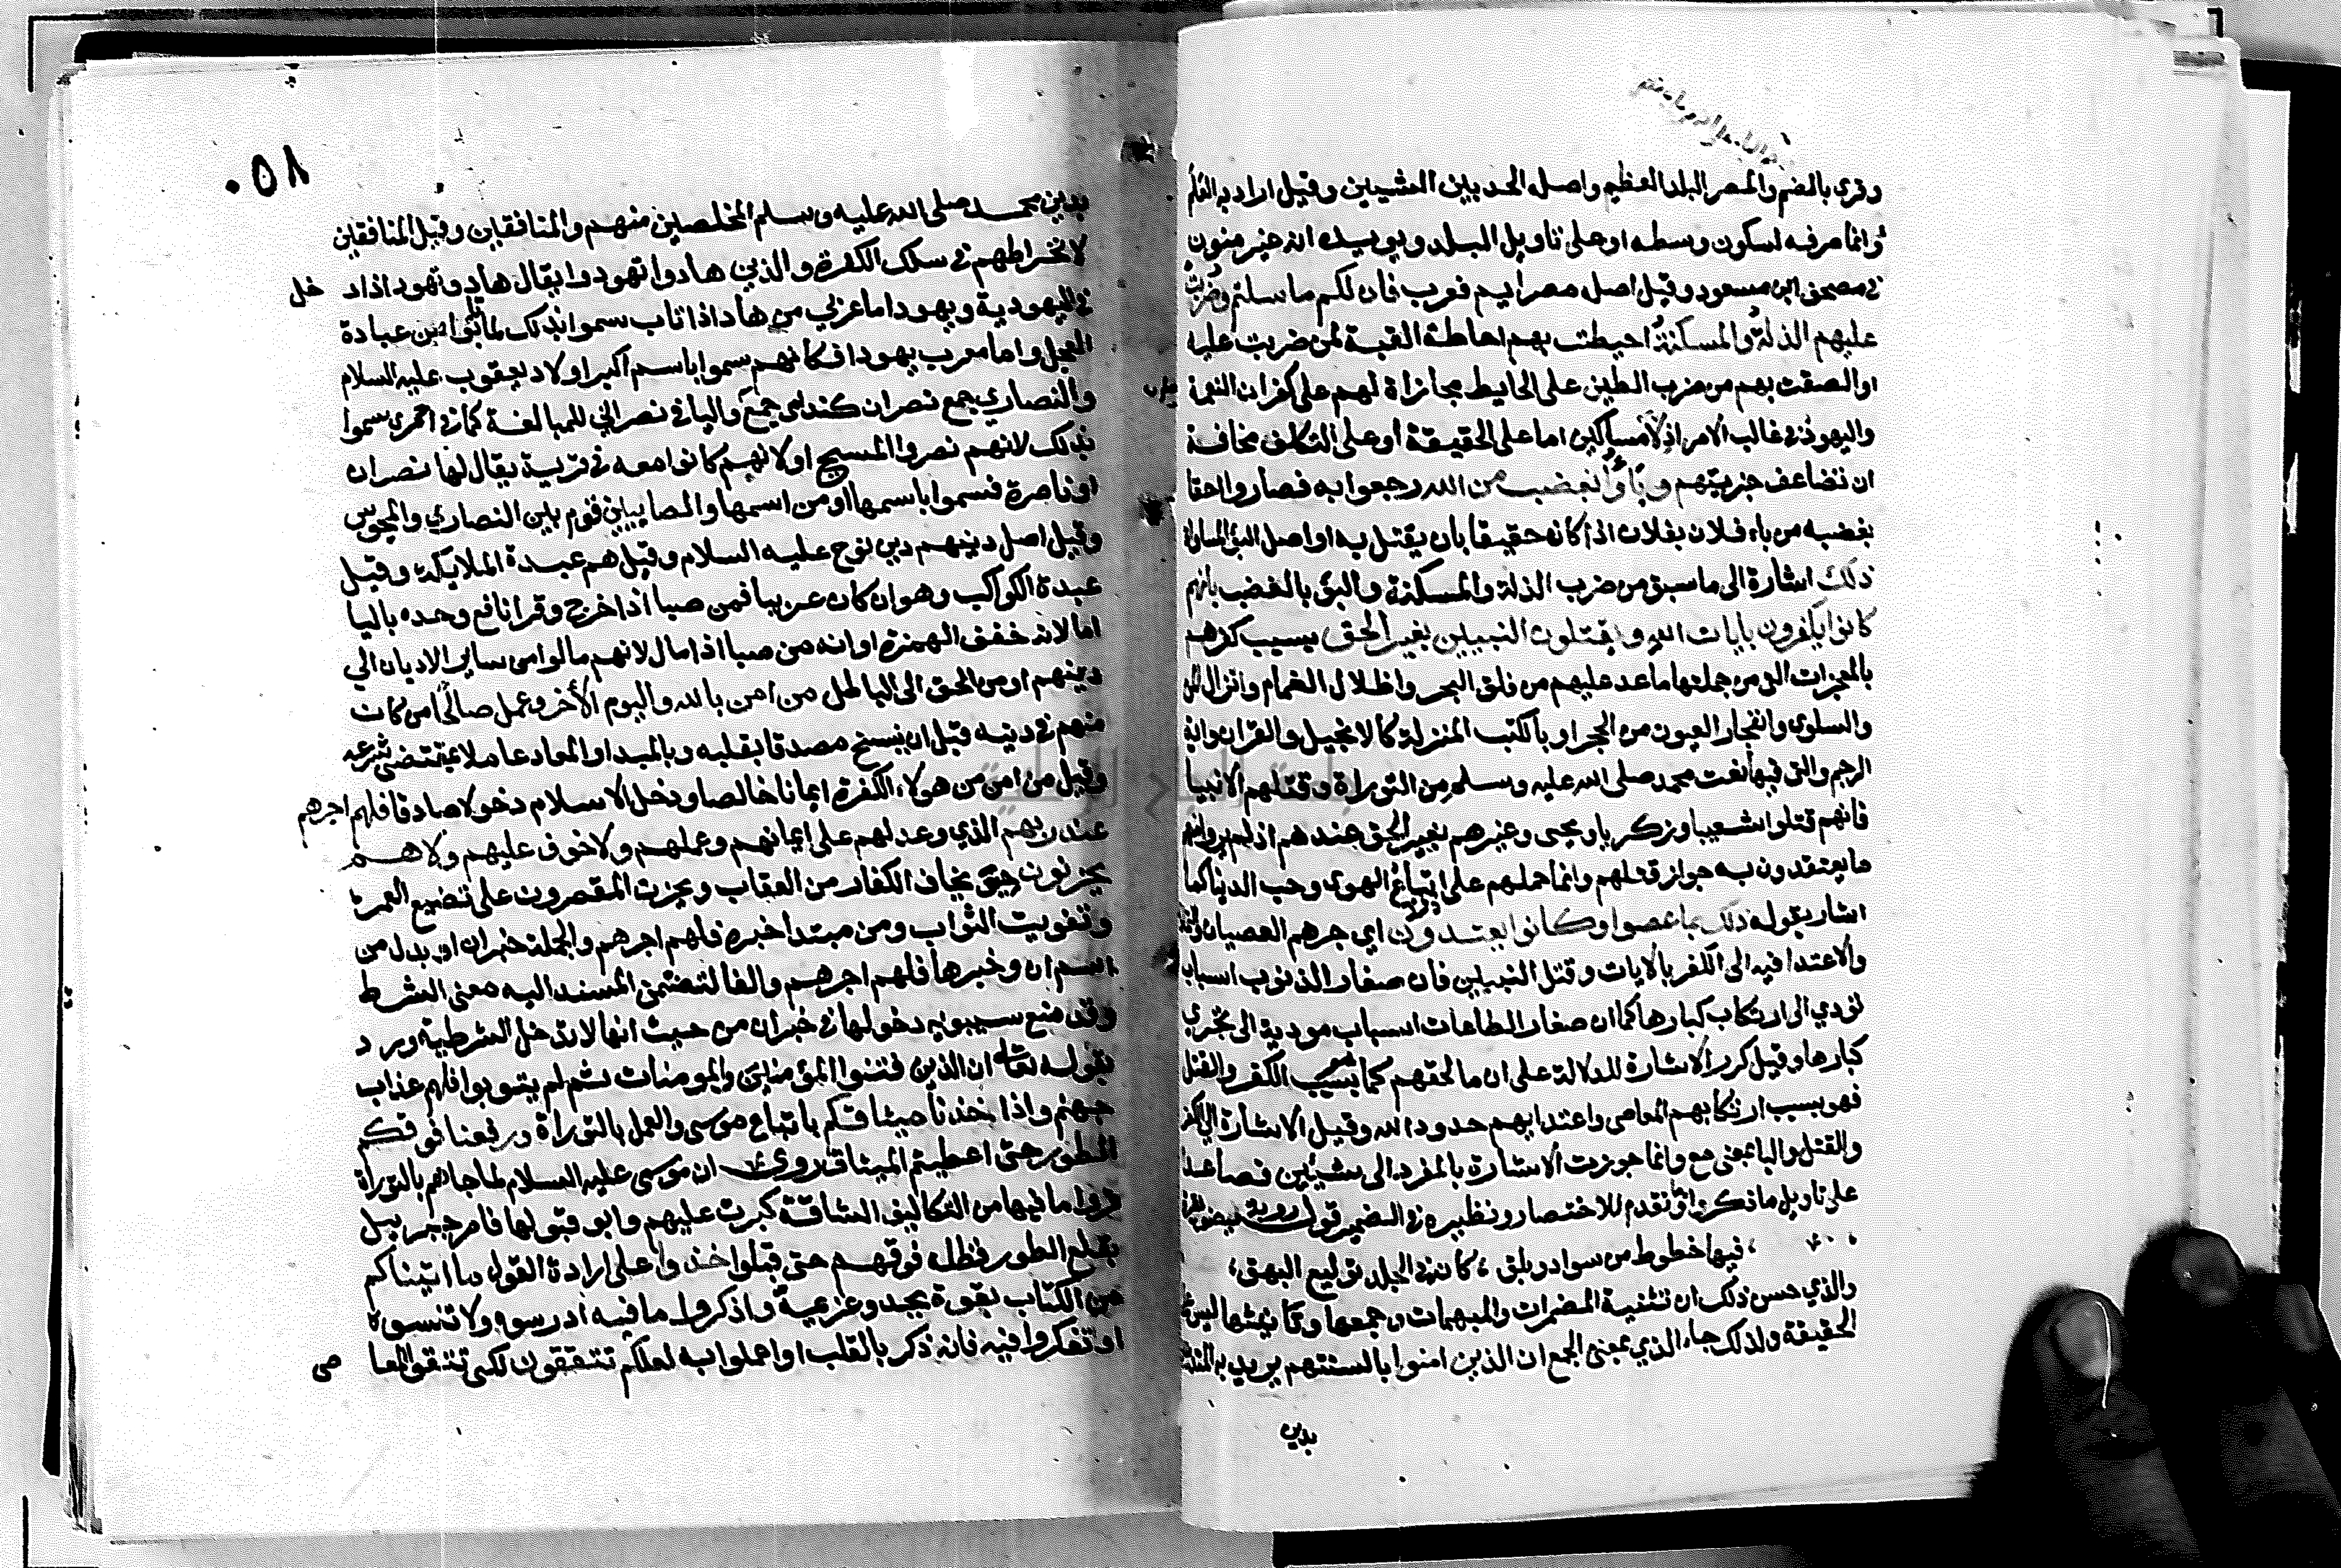 وقري بالضم والمصر البلد العظيم واصله الحد بين الشيين وقيل اراد به العلم
وانما صرفه لسكون وسطه او على تاويل البلد ويويده انه غير منون
في مصحف ابن مسعود وقيل اصله مصرايم فعرب فان لكم ما سالتم وضربت
عليهم الذلة والمسكنة احيطت بهم احاطة القبة لمن ضربت عليه
او الصقت بهم من ضرب الطين على الحايط مجازاة لهم على كفران النعمة
واليهود في غالب الامر اذلا مساكين اما على الحقيقة او على التكلف مخافة
ان تضاعف جزيتهم وباؤا بغضب من الله رجعوا به فصاروا احقا
بغضبه من باء فلان بفلان اذا كان حقيقا بان يقتل به او اصل البؤ المساواة
ذلك اشارة الى ما سبق من ضرب الذلة والمسكنة والبؤ بالغضب بانهم
كانوا يكفرون بايات الله ويقتلون النبيين بغير الحق بسبب كفرهم
بالمعجزات التي من جملتها ما عد عليهم من فلق البحر واظلال الغمام وانزال المن
والسلوى وانفجار العيون من الحجر او بالكتب المنزلة كالانجيل والقران واية
الرجم والتي فيها نعت محمد صلى الله عليه وسلم من التوراة وقتلهم الانبيا
فانهم قتلوا شعيبا وزكريا ويحيى وغيرهم بغير الحق عندهم اذ لم يروا منهم
ما يعتقدون به جواز قتلهم وانما حملهم على اتباع الهوى وحب الدنيا كما
اشار بقوله ذلك بما عصوا وكانوا يعتدون اي جرهم العصيان
والاعتدا فيه الى الكفر بالايات وقتل النبيين فان صغار الذنوب اسباب
تودي الى ارتكاب كبارها كما ان صغار الطاعات اسباب مودية الى تحري
كبارها وقيل كرر الاشارة للدلالة على ان ما لحقهم كما بسبب الكفر والقتل
فهو بسبب ارتكابهم المعاصي واعتدايهم حدود الله وقيل الاشارة الى الكفر
والقتل والبا بمعنى مع وانما جوزت الاشارة بالمفرد الى شيئين فصاعدا
على تاويل ما ذكر او تقدم للاختصار ونظيره في الضمير قول روبة
فيها خطوط من سواد وبلق ، كانه في الجلد توليع البهق ،
والذي حسن ذلك ان تثنية المضمرات والمبهمات وجمعها وتانيثها ليس على
الحقيقة ولذلك جاء الذي بمعنى الجمع ان الذين امنوا بالسنتهم يريد به المتدينين
بدين
٠٥٨
بدين محمد صلى الله عليه وسلم المخلصين منهم والمنافقين وقيل المنافقين
لانخراطهم في سلك الكفرة والذين هادوا تهودوا يقال هاد وتهود اذا دخل
في اليهودية ويهود اما عربي من هاد اذا تاب سموا بذلك لما تابوا من عبادة
العجل واما معرب يهودا فكانهم سموا باسم اكبر اولاد يعقوب عليه السلام
والنصاري جمع نصران كندامى جمع واليا في نصراني للمبالغة كما في احمري سموا
بذلك لانهم نصروا المسيح او لانهم كانوا معه في قرية يقال لها نصران
او ناصرة فسموا باسمها او من اسمها والصابيين قوم بين النصاري والمجوس
وقيل اصل دينهم دين نوح عليه السلام وقيل هم عبدة الملايكة وقيل
عبدة الكواكب وهو ان كان عربيا فمن صبا اذا خرج وقرا نافع وحده باليا
اما لانه خفف الهمزة او انه من صبا اذا مال لانهم مالوا من ساير الاديان الي
دينهم او من الحق الى الباطل من امن بالله واليوم الاخر وعمل صالحا من كان
منهم في دينه قبل ان ينسخ مصدقا بقلبه وبالمبدا والمعاد عاملا بمقتضى شرعه
وقيل من امن من هولاء الكفرة ايمانا خالصا ودخل الاسلام دخولا صادقا فلهم اجرهم
عند ربهم الذي وعد لهم على ايمانهم وعملهم ولا خوف عليهم ولا هم
يحزنون حين يخاف الكفار من العقاب ويحزن المقصرون على تضيع العمر
وتفويت الثواب ومن مبتدا خبره فلهم اجرهم والجملة خبر ان او بدل من
اسم ان وخبرها فلهم اجرهم والفا لتضمن المسند اليه معنى الشرط
وقد منع سيبويه دخولها في خبر ان من حيث انها لا تدخل الشرطية ورد
بقوله تعالى ان الذين فتنوا المؤمنين والمومنات ثم لم يتوبوا فلهم عذاب
جهنم واذ اخذنا ميثاقكم باتباع موسى والعمل بالتوراة ورفعنا فوقكم
الطور حتى اعطيتم الميثاق روي ان موسى عليه السلام لما جاهم بالتوراة
فراوا ما فيها من التكاليف الشاقة كبرت عليهم وابو قبولها فامر جبريل
بقلع الطور فظلله فوقهم حتى قبلوا خذوا على ارادة القول ما اتيناكم
من الكتاب بقوة بجد وعزيمة واذكروا ما فيه ادرسوه ولا تنسوه
او تفكروا فيه فانه ذكر بالقلب او اعملوا به لعلكم تتقون لكي تتقوا المعاصى